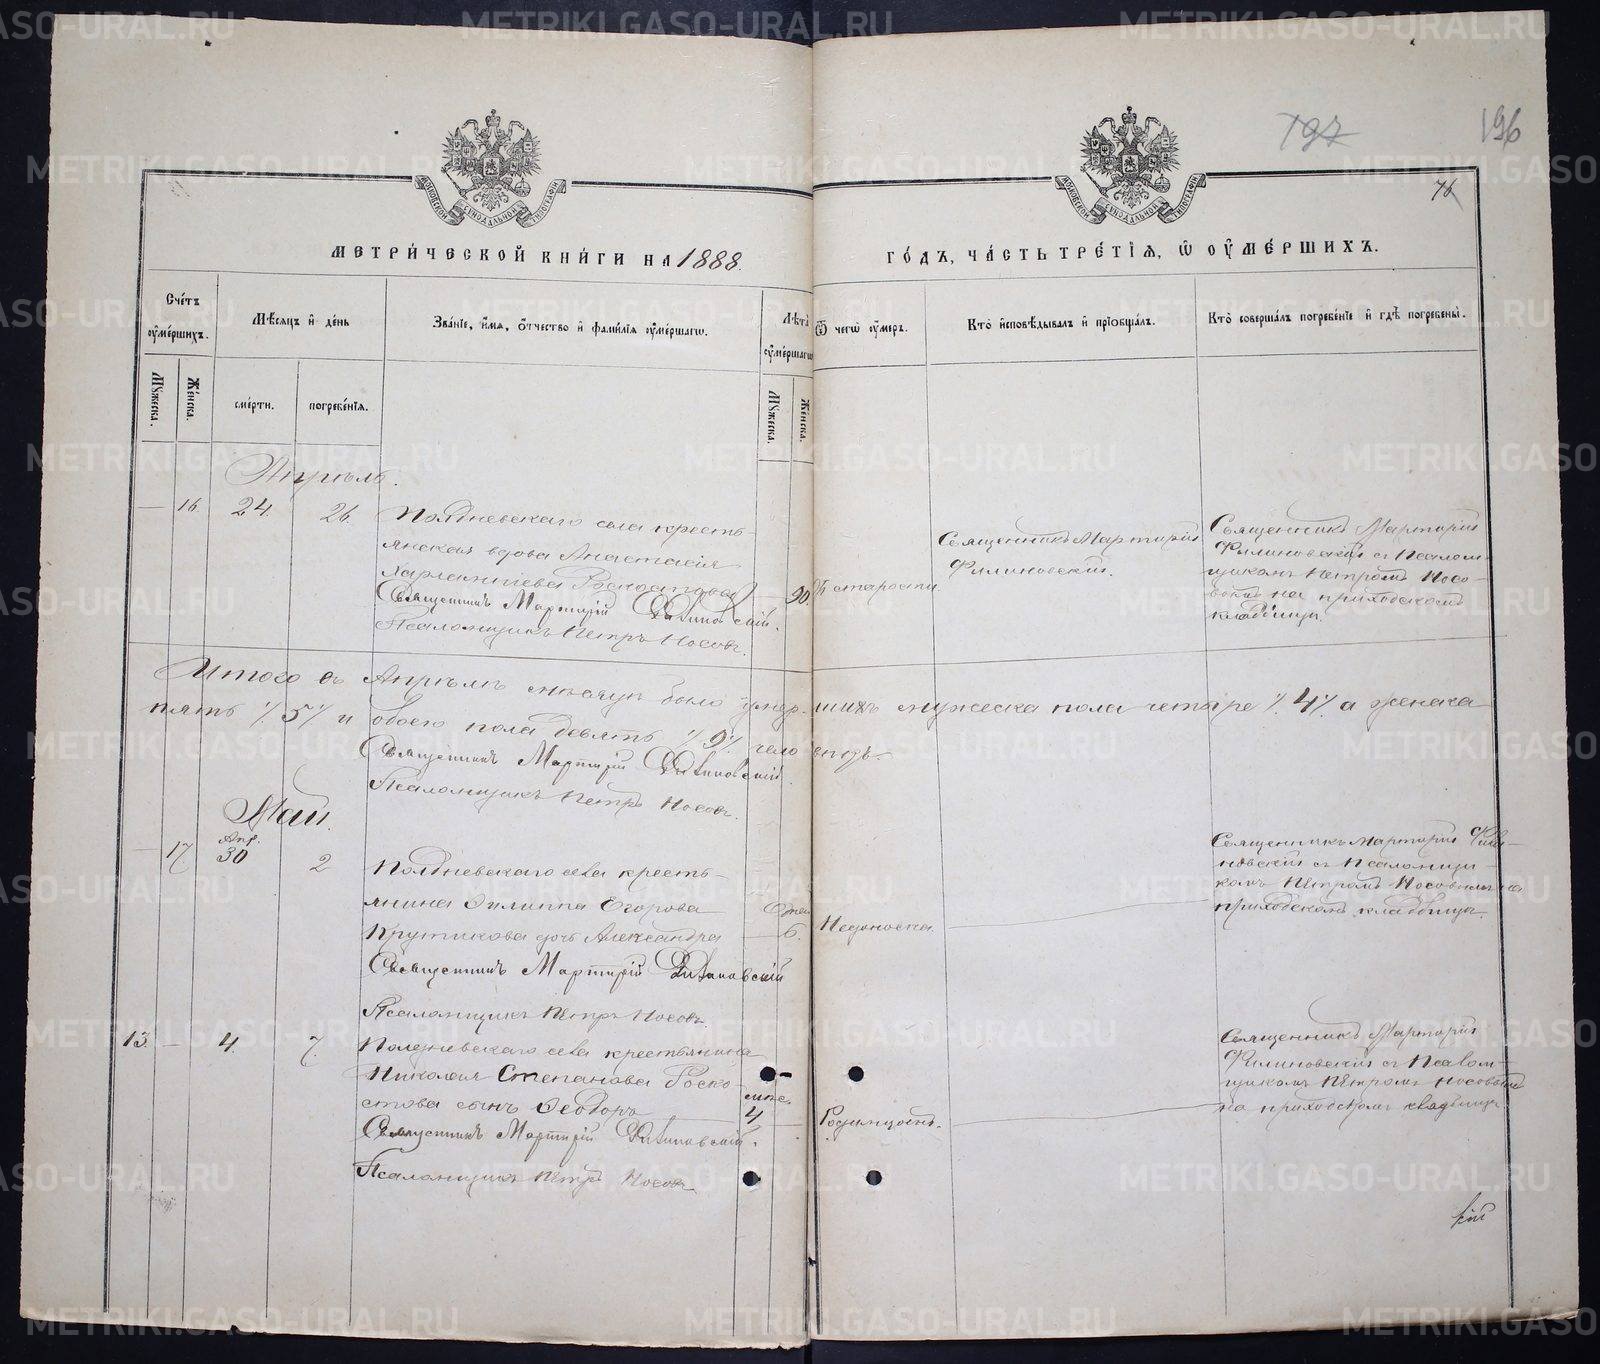 197
196
МОСКОВСКОЙ СѴНОДАЛЬНОЙ ТИПОГРАФІИ
МОСКОВСКОЙ СѴНОДАЛЬНОЙ ТИПОГРАФІИ
МЕТРИ́ЧЕСКОЙ КНИ́ГИ НА 1888
ГО́ДЪ, ЧА́СТЬ ТРЕ́ТІЯ, Ѡ ОУМЕ́РШИХЪ.
Счетъ оумершихъ.
Мужеска.
Женска.
Мѣсяцъ и день
смерти.
погребенія.
Званіе, имя, отчество и фамилія оумершагѡ.
Лѣта оумершагѡ
Мужеска.
Женска.
Ѿ чегѡ оумеръ.
Кто исповѣдывалъ и пріобщалъ.
Кто совершалъ погребеніе и гдѣ погребены.
Апрѣль.
— 16. 24. 26.
Полдневскаго села кресть-
янская вдова Анастасія
Харлампіева Роскостова
Священникъ Мартирій Филиновскій.
Псаломщикъ Петръ Носовъ.
— 90.
Ѿ старости.
Священникъ Мартирій
Филиновскій.
Священникъ Мартирій
Филиновскій съ Псалом-
щикомъ Петромъ Носо-
вымъ на приходскомъ
кладбищѣ.
Итого въ Апрѣлѣ мѣсяцѣ было умерших мужеска пола четыре % 4 % а женска
пять % 5 % и обоего пола девять % 9 % человѣкъ.
Священникъ Мартирій Филиновскій.
Псаломщикъ Петръ Носовъ.
Май.
— 17. Апр. 30 2
Полдневскаго села кресть-
янина Филиппа Егорова
Крутикова дочь Александра
Священникъ Мартирій Филиновскій
Псаломщикъ Петръ Носовъ.
6.
Недоноска.
Священникъ Мартирій Фили-
новскій съ Псаломщи-
комъ Петромъ Носовымъ на
приходскомъ кладбищѣ.
13. — 4. 7.
Полдневскаго села крестьянина
Николая Степанова Роско-
стова сынъ Ѳеодоръ
Священникъ Мартирій Филиновскій.
Псаломщикъ Петръ Носовъ
4
Родимцомъ.
Священникъ Мартирій
Филиновскій съ Псалом-
щикомъ Петромъ Носовымъ
на приходскомъ кладбищѣ
METRIKI.GASO-URAL.RU